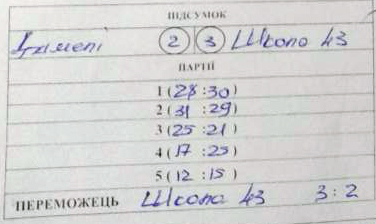 ПІДСУМОК
2 3 Школа 43
ПАРТІЇ
1 (28:30)
2 (31:29)
3 (25:21)
4 (17:25)
5 (12:15)
ПЕРЕМОЖЕЦЬ Школа 43 3:2